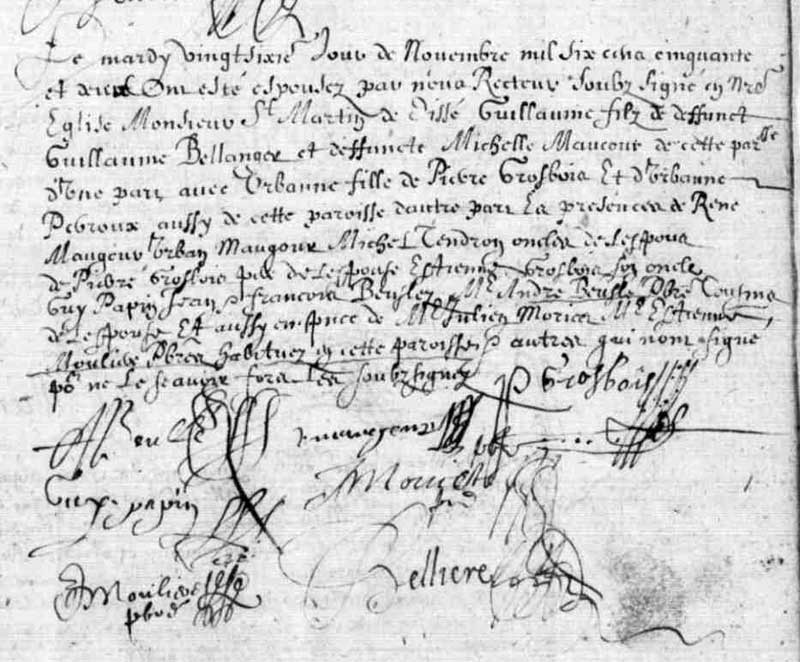 Le mardy vingtsixie Jour de Novembre mil six cens cinquante
et deux Ont esté espousez par nous Recteur soubz signé en nre
Eglise Monsieur St Martin de Guillaume filz de deffunct
Guillaume Bellanger et deffuncte Michelle Maucour de cette parsse
d'Une part avec Urbanne fille de Pierre Grosbois Et d'Urbanne
Pebroux aussy de cette paroisse d'autre part Es presences de Rene
Maugour Urban Maugour Michel Tendron oncles de lespoux
de Pierre Grosbois pere de lespouse Estienne Grosbois son oncle
Guy Papin Jean & Francois Me André pbre Cousins
de lespouse Et aussy en pnce de Me Julien Morice Me Estienne
Mouliere Pbres habituez en cette paroisse & autres qui nont signe
po ne le scavoir fors les soubzsignez
P Grosbois
r maugour
Morice
pbre
Guy papin
Belliere
Mouliere
pbre